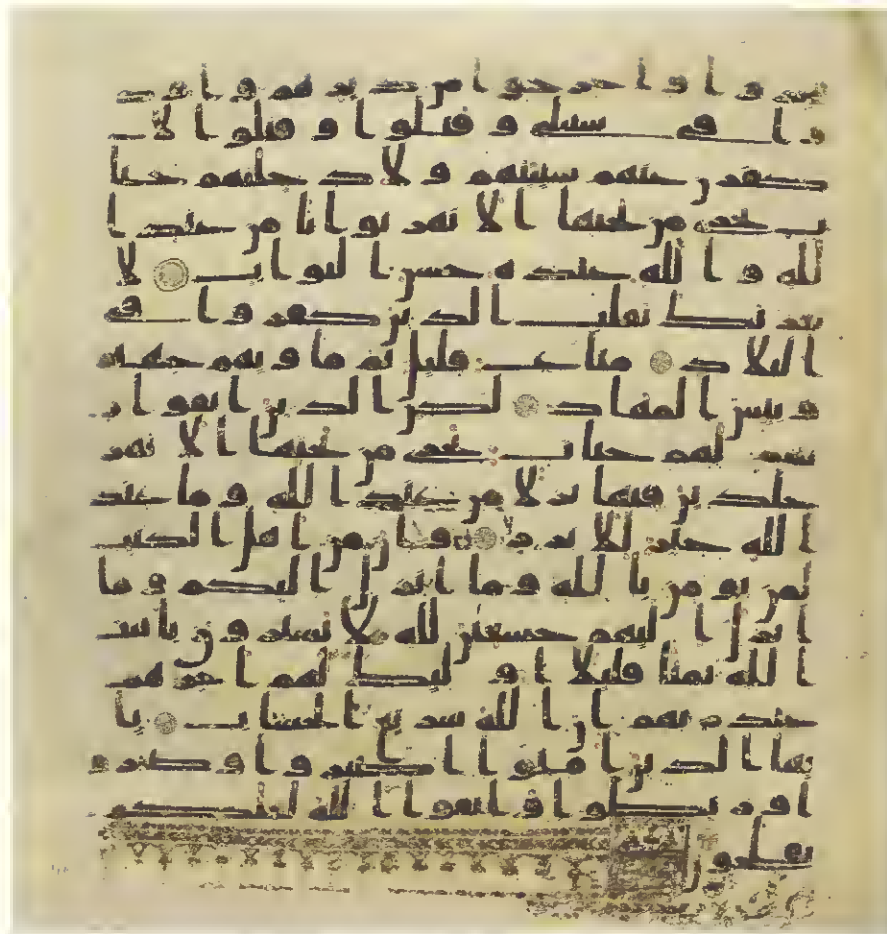 جروا واخرجوا من ديرهم واوذ
وا في سبيلي وقتلوا وقتلوا لا
كفرن عنهم سيتهم ولادخلنهم جنا
ت تجري من تحتها الانهر ثوابا من عند ا
لله والله عنده حسن الثواب لا
يغرنك تقلب الذين كفروا في
البلاد متاع قليل ثم ماويهم جهنم
وبيس المهاد لكن الذين اتقوا ر
بهم لهم جنات تجري من تحتها الانهر
خلدين فيها نزلا من عند الله وما عند
الله خير للابرار وان من اهل الكتب
لمن يومن بالله وما انزل اليكم وما
انزل اليهم خشعين لله لا يشترون بايت
الله ثمنا قليلا اوليك لهم اجرهم
عند ربهم ان الله سريع الحساب يا
يها الذين امنوا اصبروا وصابروا و
رابطوا واتقوا الله لعلكم
تفلحون